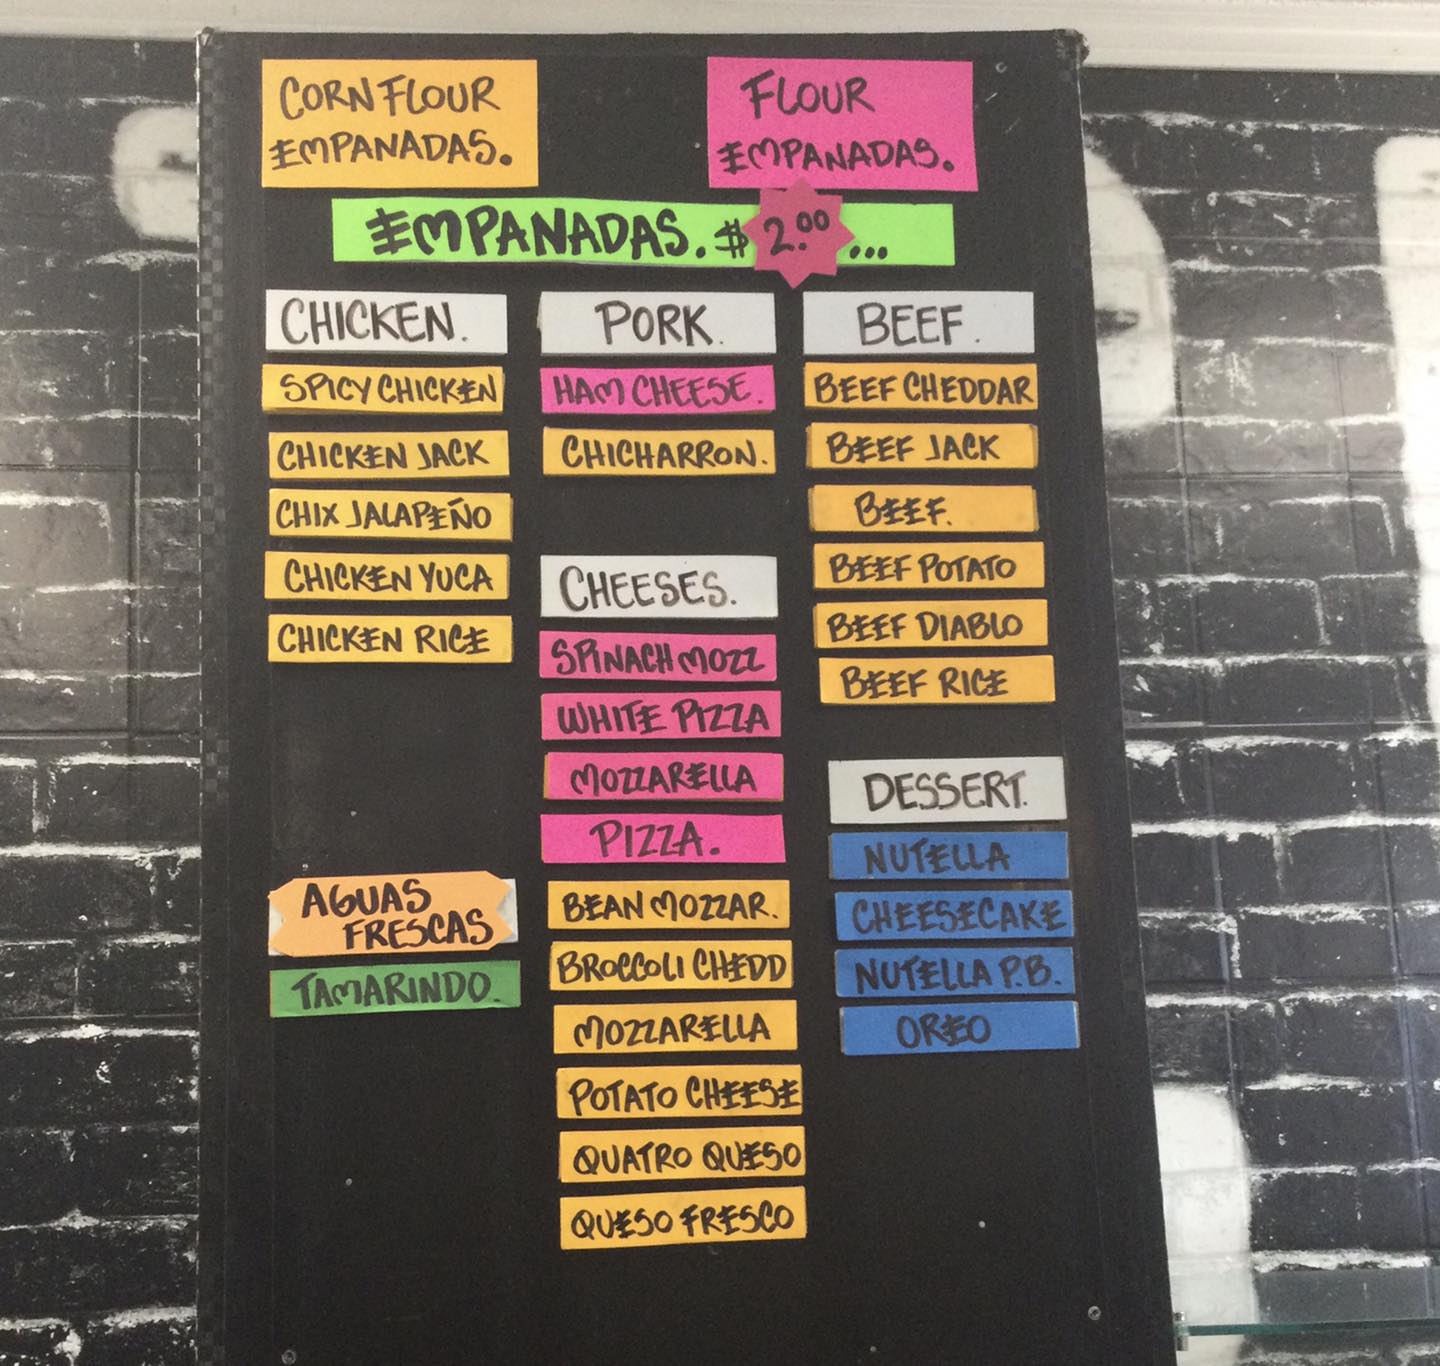 CORN FLOUR
EMPANADAS.
FLOUR
EMPANADAS.
EMPANADAS. $2.00...
CHICKEN.
SPICY CHICKEN
CHICKEN JACK
CHIX JALAPEÑO
CHICKEN YUCA
CHICKEN RICE
AGUAS
FRESCAS
TAMARINDO.
PORK.
HAM CHEESE.
CHICHARRON.
CHEESES.
SPINACH MOZZ
WHITE PIZZA
MOZZARELLA
PIZZA.
BEAN MOZZAR.
BROCCOLI CHEDD
MOZZARELLA
POTATO CHEESE
QUATRO QUESO
QUESO FRESCO
BEEF.
BEEF CHEDDAR
BEEF JACK
BEEF.
BEEF POTATO
BEEF DIABLO
BEEF RICE
DESSERT.
NUTELLA
CHEESECAKE
NUTELLA P.B.
OREO